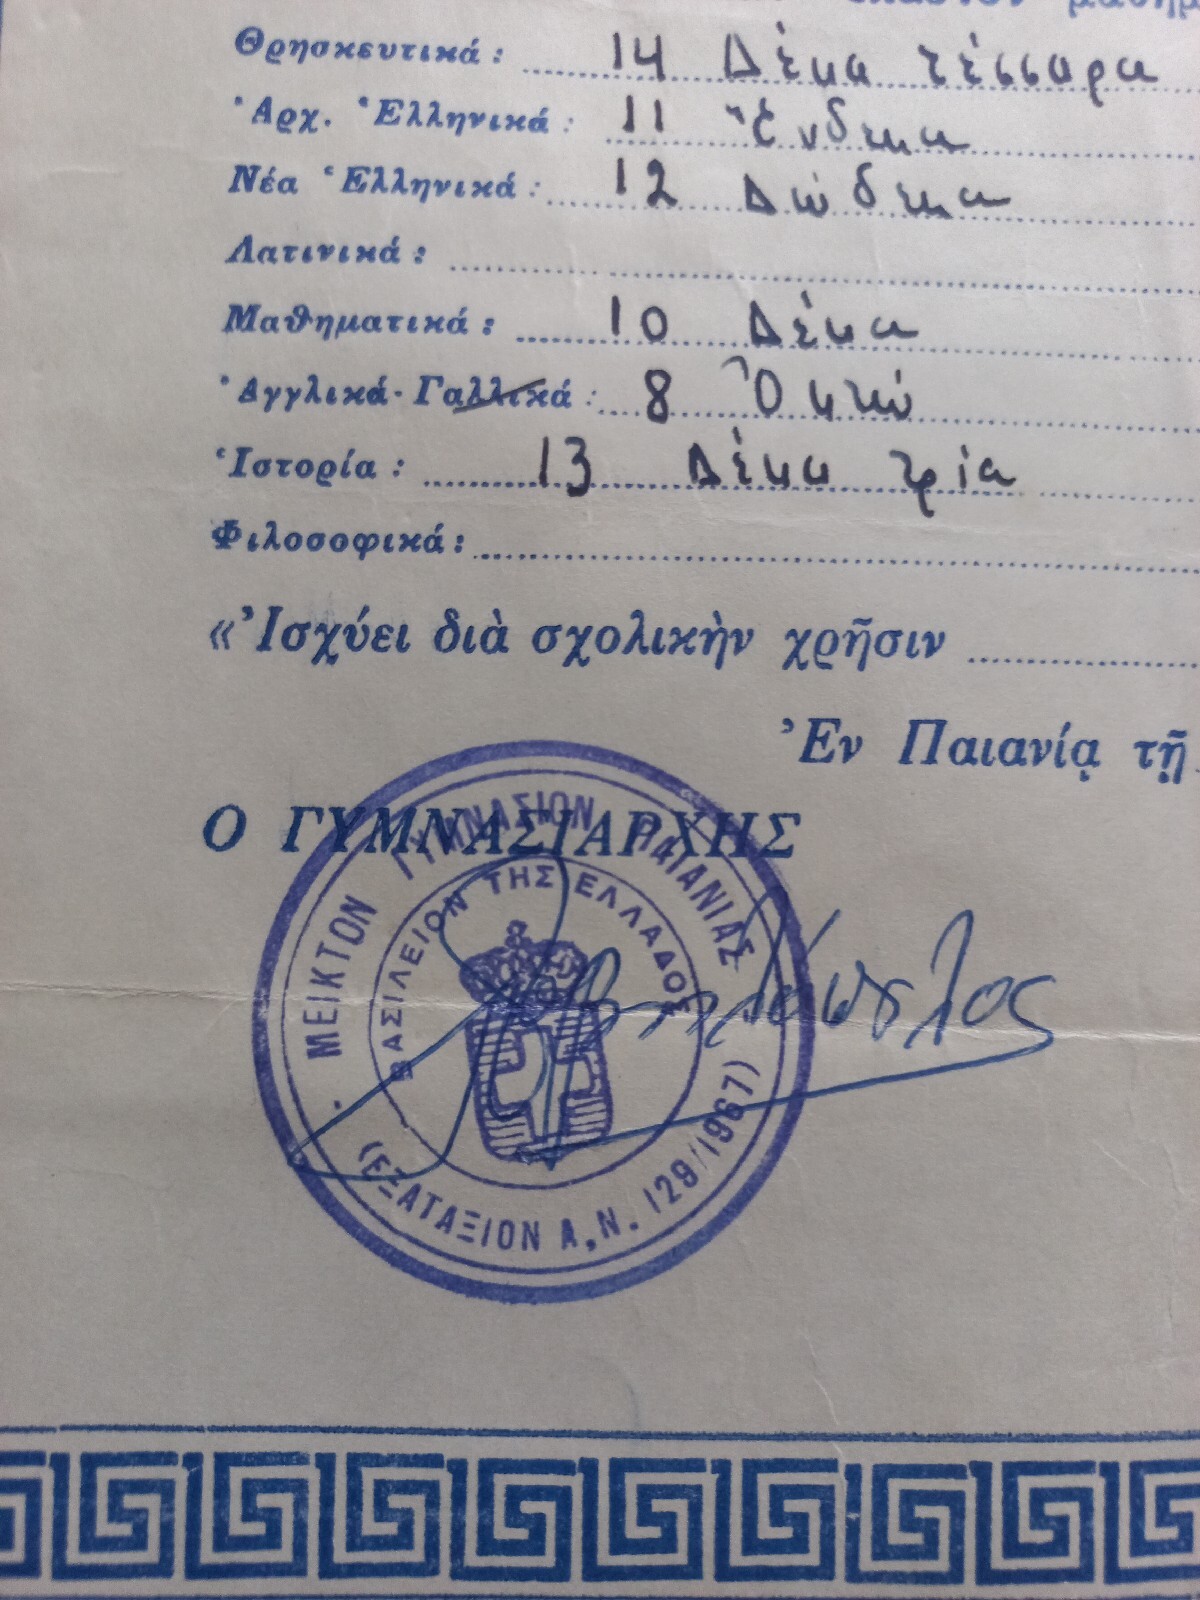 Θρησκευτικά: 14 Δέκα τέσσαρα
Ἀρχ. Ἑλληνικά: 11 Ἕνδεκα
Νέα Ἑλληνικά: 12 Δώδεκα
Λατινικά:
Μαθηματικά: 10 Δέκα
Ἀγγλικά - Γαλλικά: 8 Ὀκτώ
Ἱστορία: 13 Δέκα τρία
Φιλοσοφικά:
«Ἰσχύει διὰ σχολικὴν χρῆσιν
Ἐν Παιανίᾳ τῇ
Ο ΓΥΜΝΑΣΙΑΡΧΗΣ
ΜΕΙΚΤΟΝ ΓΥΜΝΑΣΙΟΝ ΠΑΙΑΝΙΑΣ
ΒΑΣΙΛΕΙΟΝ ΤΗΣ ΕΛΛΑΔΟΣ
(ΕΞΑΤΑΞΙΟΝ Α.Ν. 129/1967)